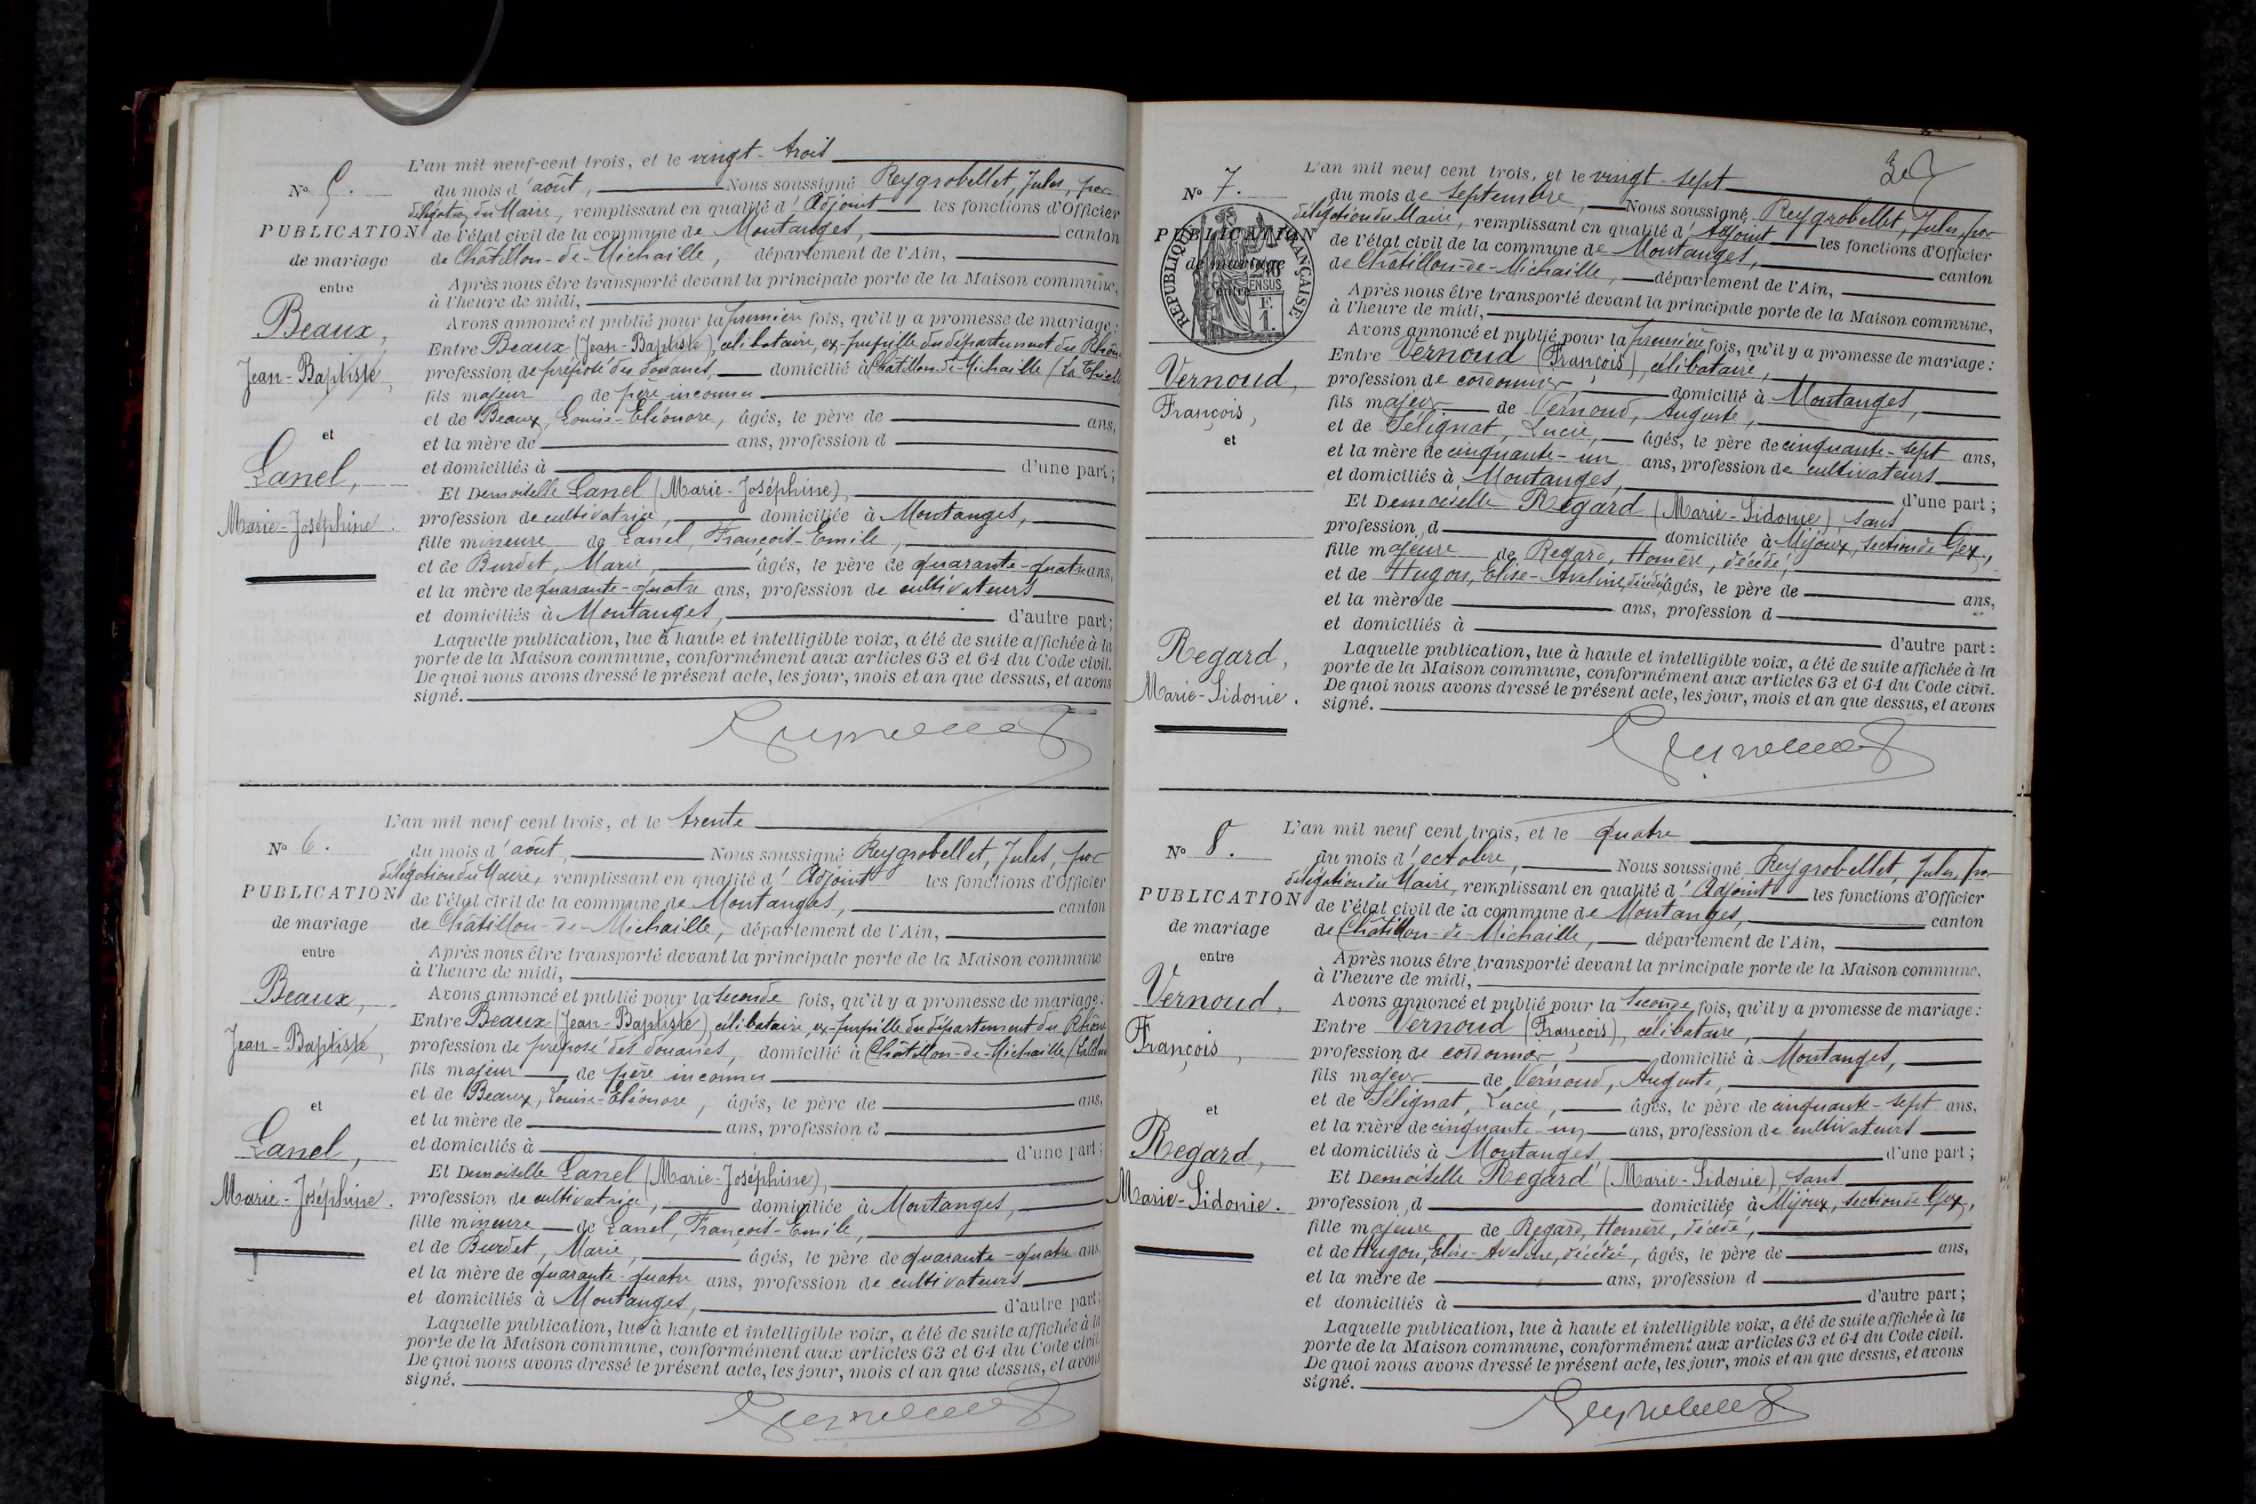 L'an mil neuf-cent trois, et le vingt-trois
No 5.
du mois d'août, Nous soussigné Reygrobellet, Jules, par
délégation du Maire, remplissant en qualité d'Adjoint les fonctions d'Officier
PUBLICATION
de l'état civil de la commune de Montanges, canton
de mariage
de Châtillon-de-Michaille, département de l'Ain,
entre
Après nous être transporté devant la principale porte de la Maison commune,
à l'heure de midi,
Beaux,
Avons annoncé et publié pour la première fois, qu'il y a promesse de mariage:
Entre Beaux (Jean-Baptiste), célibataire, ex-pupille du département du Rhône
Jean-Baptiste,
profession de préposé des douanes, domicilié à Châtillon-de-Michaille (La
fils majeur de père inconnu
et de Beaux, Louise-Eléonore, âgés, le père de ans,
et
et la mère de ans, profession d
et domiciliés à d'une part;
Lanel,
Et Demoiselle Lanel (Marie-Joséphine),
Marie-Joséphine.
profession de cultivatrice, domiciliée à Montanges,
fille mineure de Lanel, François-Emile,
et de Burdet, Marie, âgés, le père de quarante-quatre ans,
et la mère de quarante-quatre ans, profession de cultivateurs
et domiciliés à Montanges, d'autre part;
Laquelle publication, lue à haute et intelligible voix, a été de suite affichée à la
porte de la Maison commune, conformément aux articles 63 et 64 du Code civil.
De quoi nous avons dressé le présent acte, les jour, mois et an que dessus, et avons
signé.
L'an mil neuf cent trois, et le trente
No 6.
du mois d'août, Nous soussigné Reygrobellet, Jules, par
délégation du Maire, remplissant en qualité d'Adjoint les fonctions d'Officier
PUBLICATION
de l'état civil de la commune de Montanges, canton
de mariage
de Châtillon-de-Michaille, département de l'Ain,
entre
Après nous être transporté devant la principale porte de la Maison commune
à l'heure de midi,
Beaux,
Avons annoncé et publié pour la seconde fois, qu'il y a promesse de mariage:
Entre Beaux (Jean-Baptiste), célibataire, ex-pupille du département du Rhône
Jean-Baptiste,
profession de préposé des douanes, domicilié à Châtillon-de-Michaille
fils majeur de père inconnu
et de Beaux, Louise-Eléonore, âgés, le père de ans,
et
et la mère de ans, profession d
et domiciliés à d'une part;
Lanel,
Et Demoiselle Lanel (Marie-Joséphine),
Marie-Joséphine.
profession de cultivatrice, domiciliée à Montanges,
fille mineure de Lanel, François-Emile,
et de Burdet, Marie, âgés, le père de quarante-quatre ans,
et la mère de quarante-quatre ans, profession de cultivateurs
et domiciliés à Montanges, d'autre part;
Laquelle publication, lue à haute et intelligible voix, a été de suite affichée à la
porte de la Maison commune, conformément aux articles 63 et 64 du Code civil.
De quoi nous avons dressé le présent acte, les jour, mois et an que dessus, et avons
signé.
L'an mil neuf cent trois, et le vingt-sept
No 7.
du mois de septembre, Nous soussigné Reygrobellet, Jules, par
délégation du Maire, remplissant en qualité d'Adjoint les fonctions d'Officier
PUBLICATION
de l'état civil de la commune de Montanges, canton
de mariage
de Châtillon-de-Michaille, département de l'Ain,
entre
RÉPUBLIQUE FRANÇAISE
Après nous être transporté devant la principale porte de la Maison commune,
à l'heure de midi,
Avons annoncé et publié pour la première fois, qu'il y a promesse de mariage:
Vernoud,
Entre Vernoud (François), célibataire,
François,
profession de cordonnier, domicilié à Montanges,
fils majeur de Vernoud, Auguste,
et
et de Sélignat, Lucie, âgés, le père de cinquante-sept ans,
et la mère de cinquante-un ans, profession de cultivateurs
et domiciliés à Montanges, d'une part;
Et Demoiselle Regard (Marie-Sidonie), sans
profession d domiciliée à Mijoux, section de Gex,
fille majeure de Regard, Homère, décédé,
et de Hugon, Elise-Aveline, décédée, âgés, le père de ans,
et la mère de ans, profession d
et domiciliés à d'autre part:
Regard,
Marie-Sidonie.
Laquelle publication, lue à haute et intelligible voix, a été de suite affichée à la
porte de la Maison commune, conformément aux articles 63 et 64 du Code civil.
De quoi nous avons dressé le présent acte, les jour, mois et an que dessus, et avons
signé.
L'an mil neuf cent trois, et le quatre
No 8.
du mois d'octobre, Nous soussigné Reygrobellet, Jules, par
délégation du Maire, remplissant en qualité d'Adjoint les fonctions d'Officier
PUBLICATION
de l'état civil de la commune de Montanges, canton
de mariage
de Châtillon-de-Michaille, département de l'Ain,
entre
Après nous être transporté devant la principale porte de la Maison commune,
à l'heure de midi,
Vernoud,
Avons annoncé et publié pour la seconde fois, qu'il y a promesse de mariage:
Entre Vernoud (François), célibataire,
François,
profession de cordonnier, domicilié à Montanges,
fils majeur de Vernoud, Auguste,
et de Sélignat, Lucie, âgés, le père de cinquante-sept ans,
et
et la mère de cinquante-un ans, profession de cultivateurs
et domiciliés à Montanges, d'une part;
Regard,
Et Demoiselle Regard (Marie-Sidonie), sans
Marie-Sidonie.
profession d domiciliée à Mijoux, section de Gex,
fille majeure de Regard, Homère, décédé,
et de Hugon, Elise-Aveline, décédée, âgés, le père de ans,
et la mère de ans, profession d
et domiciliés à d'autre part;
Laquelle publication, lue à haute et intelligible voix, a été de suite affichée à la
porte de la Maison commune, conformément aux articles 63 et 64 du Code civil.
De quoi nous avons dressé le présent acte, les jour, mois et an que dessus, et avons
signé.